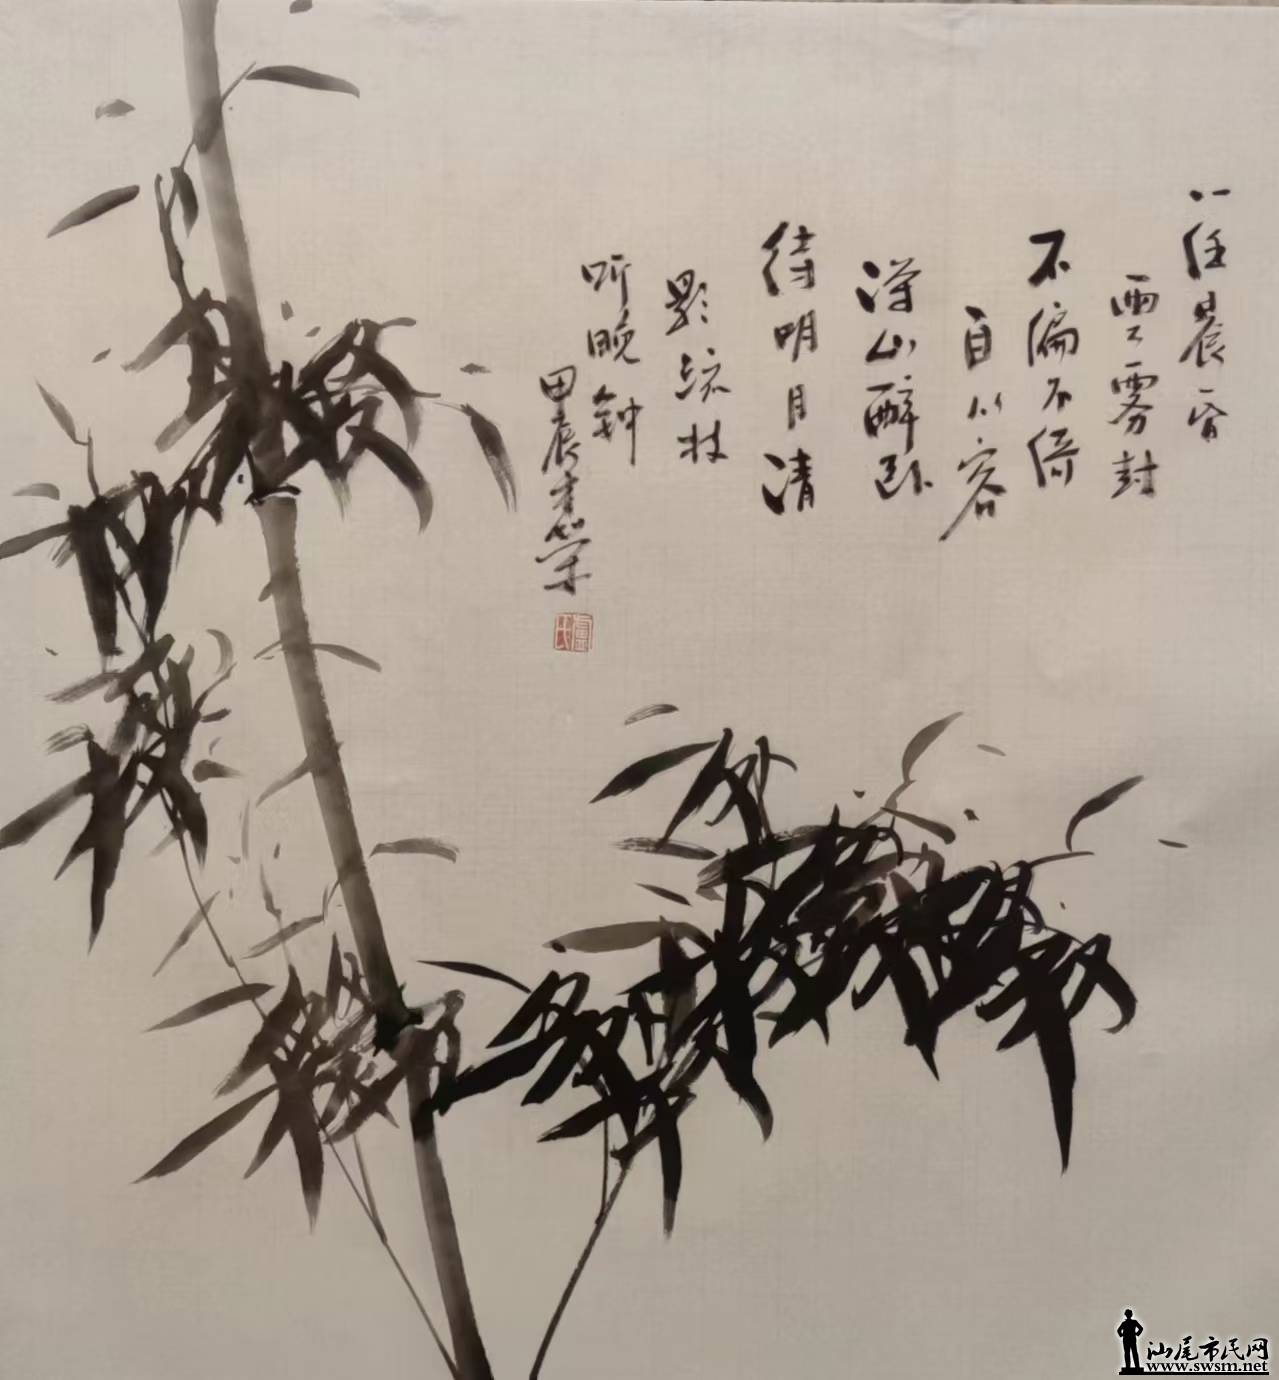 一任晨昏
雲雾封
不偏不倚
自从容
深山醉卧
待明月清
影疏枝
听晚钟
甲辰才荣
盧氏
汕尾市民网
www.swsm.net